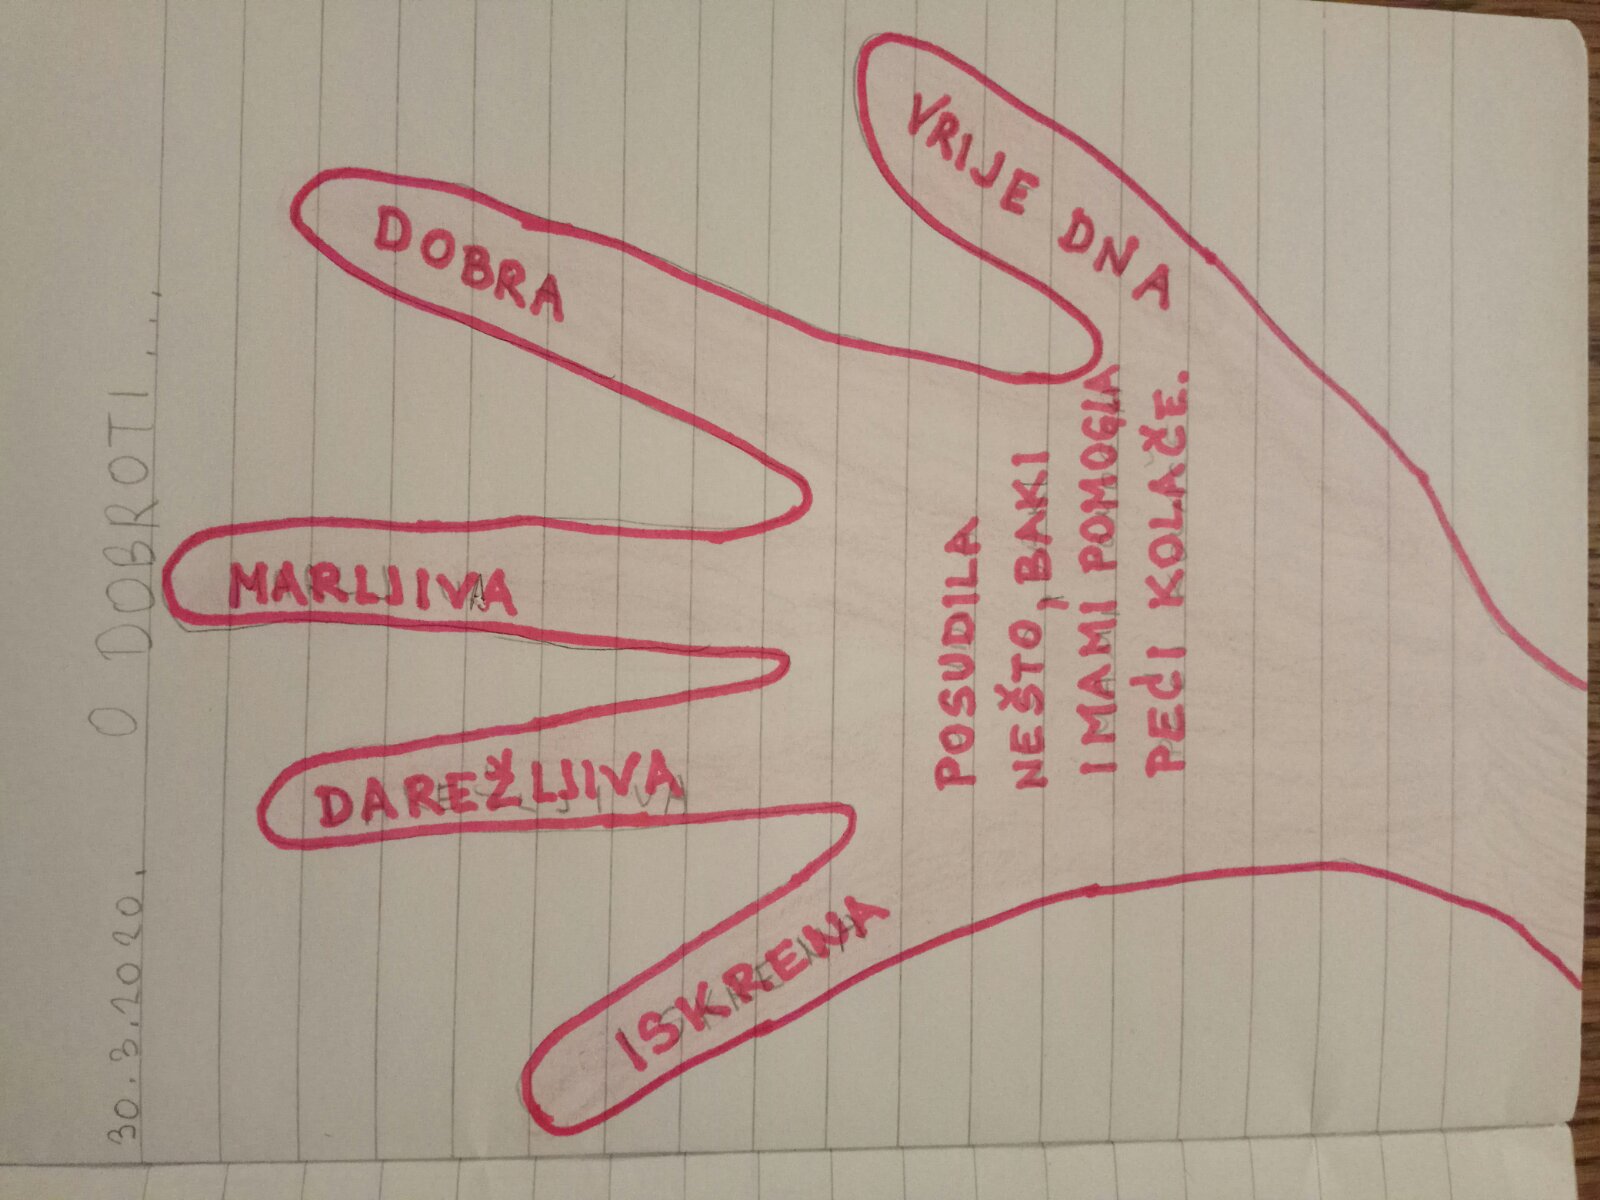 30.3.2020.
O DOBROTI...
ISKRENA
DAREŽLJIVA
MARLJIVA
DOBRA
VRIJEDNA
POSUDILA
NEŠTO, BAKI
I MAMI POMOGLA
PEĆI KOLAČE.